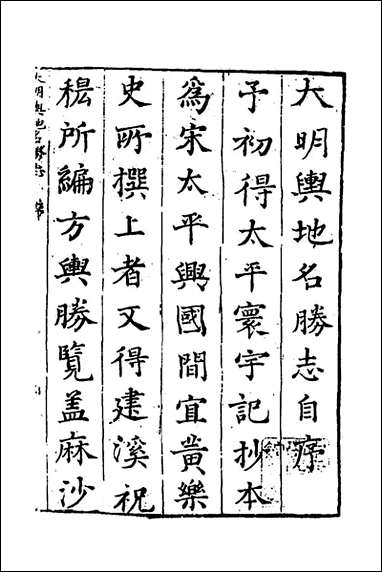 大明輿地名勝志自序
予初得太平寰宇記抄本
為宋太平興國間宜黄樂
史所撰上者又得建溪祝
穆所編方輿勝覽盖麻沙
大明輿地名勝志 序